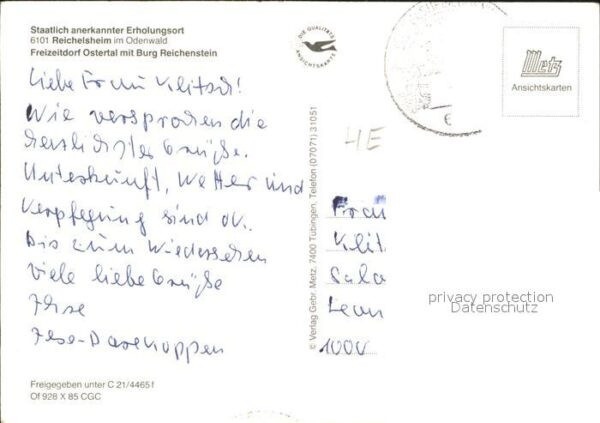 Staatlich anerkannter Erholungsort
6101 Reichelsheim im Odenwald
Freizeitdorf Ostertal mit Burg Reichenstein
DIE QUALITÄTS
ANSICHTSKARTE
Metz
Ansichtskarten
Liebe Frau Klitsch!
Wie versprochen die
herzlichsten Grüße.
Unterkunft, Wetter und
Verpflegung sind ok.
Bis zum Wiedersehen
viele liebe Grüße
4E
© Verlag Gebr. Metz, 7400 Tübingen, Telefon (07071) 31051
Frau
Klit
1000
privacy protection
Datenschutz
Freigegeben unter C 21/4465 f
Of 928 X 85 CGC